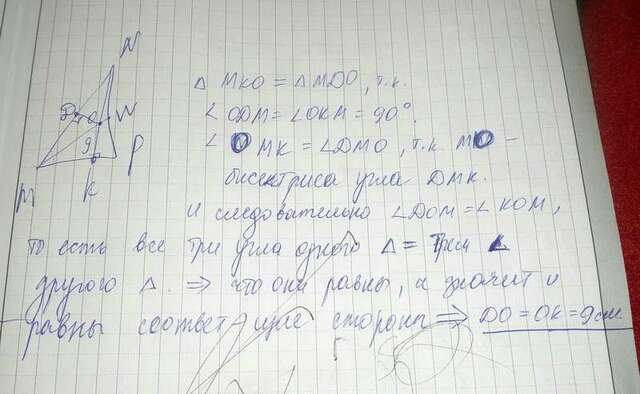 N
Δ МКО = Δ МDО, т.к.
D O W
∠ ODM = ∠OKM = 90°.
9
∠ OMK = ∠DMO, т.к. МО –
M K P
биссектриса угла DMK.
и следовательно ∠DOM = ∠KOM,
то есть все три угла одного Δ = трем ∠
другого Δ. ⇒ что они равны, а значит и
равны соответ щие стороны ⇒ DO = OK = 9 см